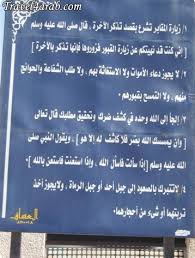 Travel4arab.com
١/ زيارة المقابر تشرع بقصد تذكر الآخرة ، قال صلى الله عليه وسلم
[ إني كنت قد نهيتكم عن زيارة القبور فزوروها فإنها تذكر بالآخرة ]
٢/ لا يجوز دعاء الأموات ولا الاستغاثة بهم ، ولا طلب الشفاعة والحوائج
منهم ، ولا التمسح بقبورهم
٣/ إلجأ إلى الله وحده في كشف ضرك وتحقيق مطلبك قال تعالى
( وإن يمسسك الله بضر فلا كاشف له إلا هو ) ، ويقول النبي صلى
الله عليه وسلم [ إذا سألت فاسأل الله ، وإذا استعنت فاستعن بالله ]
٤/ لا تتبرك بالصعود إلى جبل أحد أو جبل الرماة ، ولا يجوز أخذ
تربتهما أو شيء من أحجارهما